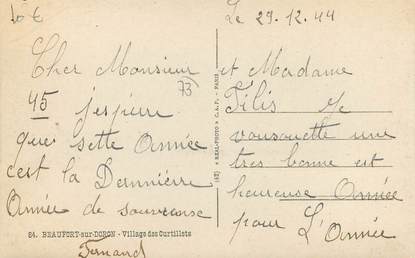 Lot
Le 29.12.44
Cher Monsieur
73
45 j'espierre
que sette Année
c'est la Dernnière
Année de souvrense
24. BEAUFORT-sur-DORON - Village des Curtillets
Fernand
"REAL-PHOTO" C.A.P. - PARIS
et Madame
Filis Je
vousouette une
tres bonne est
heureuse Année
pour L'Année